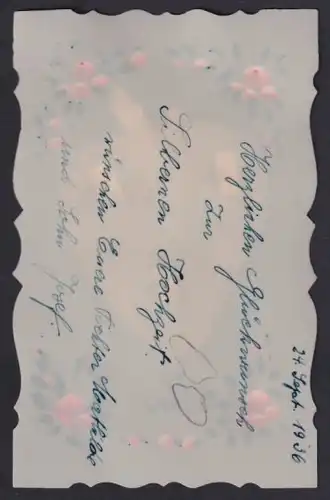 24. Sept. 1936
Herzlichen Glückwunsch
zur
Silbernen Hochzeit
wünschen Euere Tochter Mathilde
und Sohn Josef.